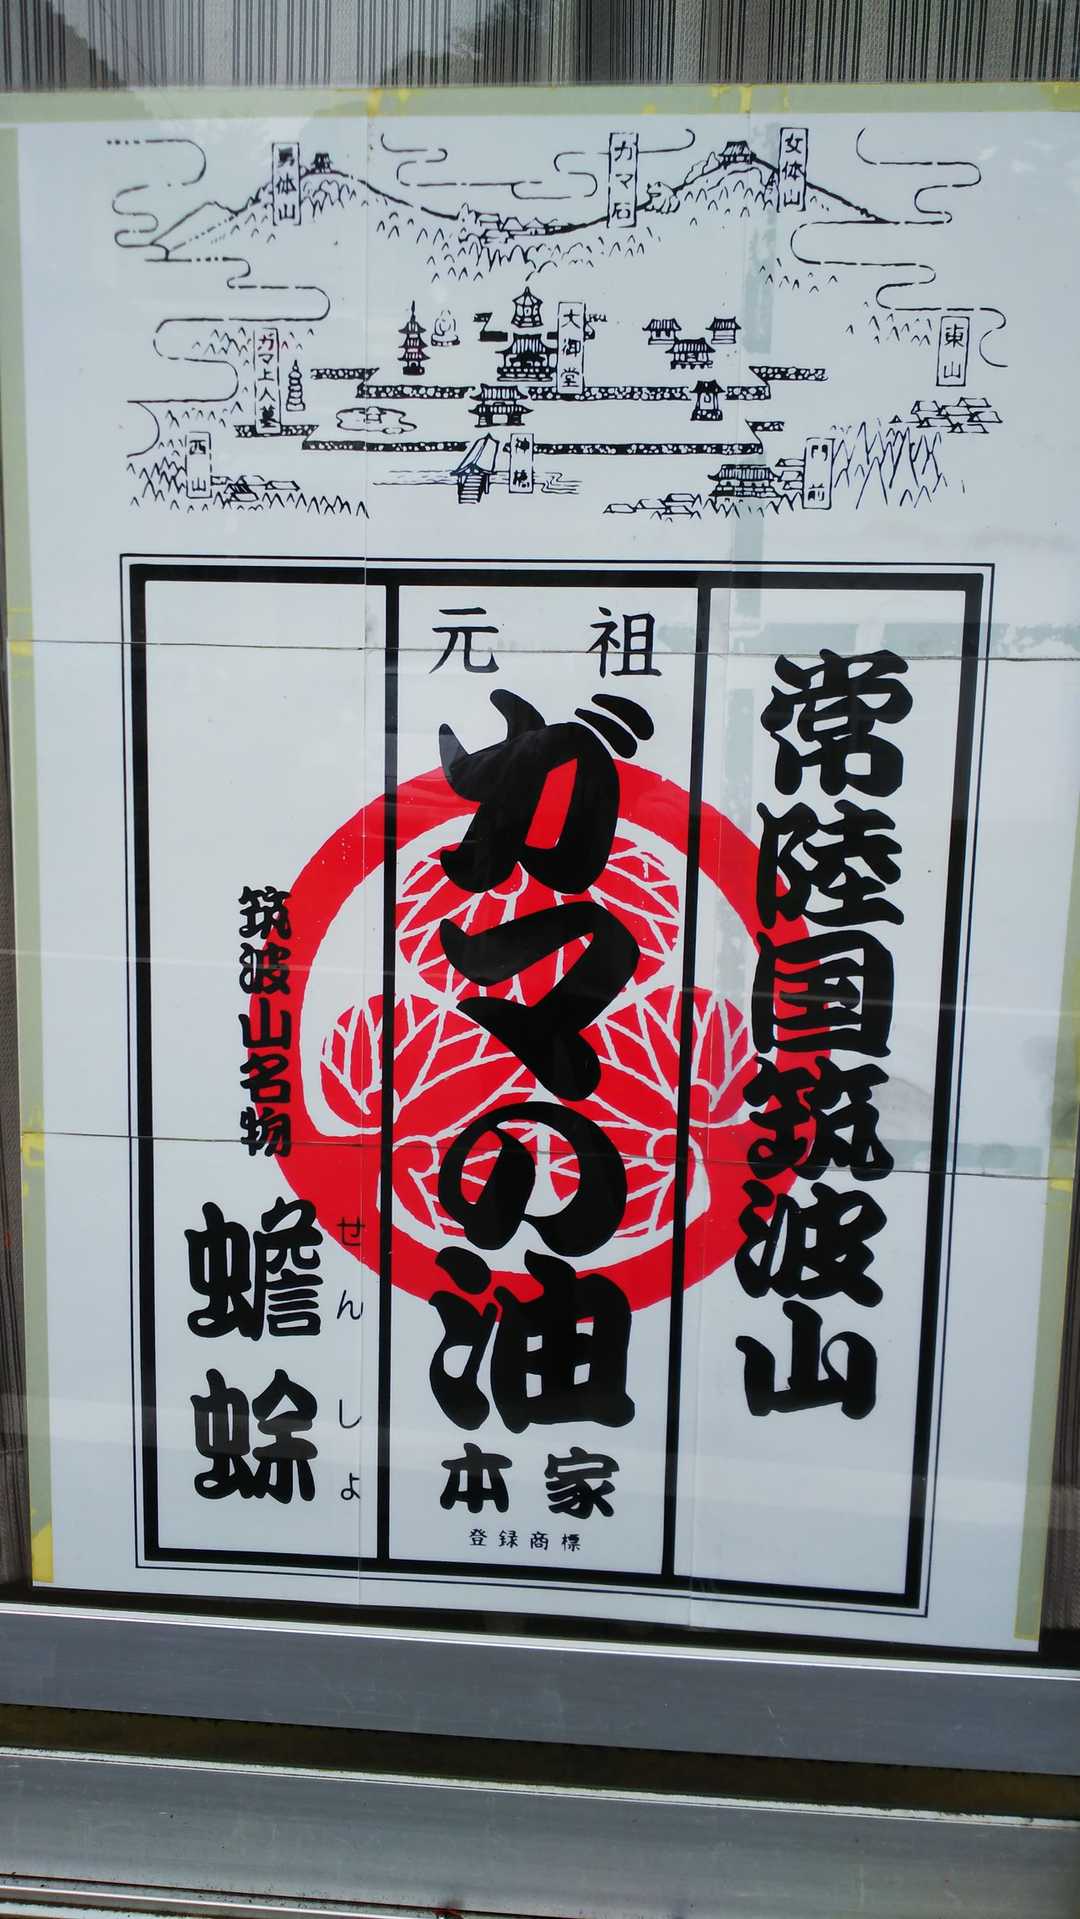 男体山
ガマ石
女体山
ガマ上人墓
大御堂
東山
西山
神橋
門前
常陸国筑波山
元祖
ガマの油
本家
登録商標
筑波山名物
せんしよ
蟾蜍